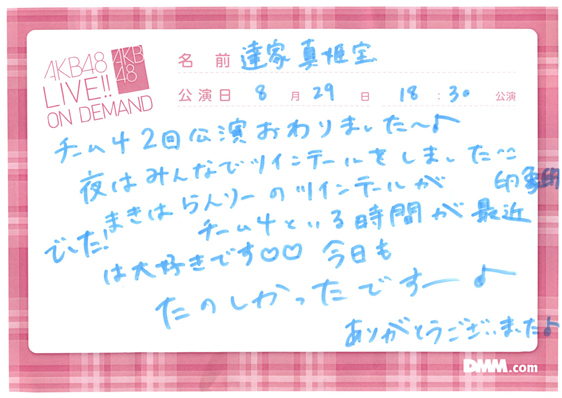 AKB48
LIVE!!
ON DEMAND
AKB
48
名前 達家真姫宝
公演日 8月29日 18:30公演
チーム4 2回公演おわりました〜♪
夜はみんなでツインテールをしました〜
まきはらんりーのツインテールが 印象的
でした! チーム4といる時間が最近
は大好きです♡♡ 今日も
たのしかったですー♪
ありがとうございました♪
DMM.com